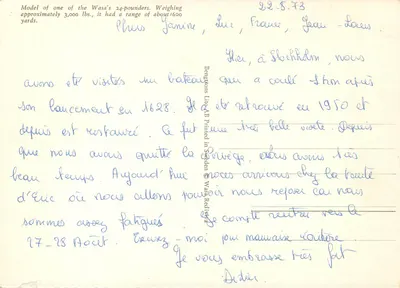 Model of one of the Wasa's 24-pounders. Weighing
approximately 3,000 lbs., it had a range of about 1600
yards.
22.8.73
Chers Janine, Luc, France, Jean-Louis
Hier, à Stockholm, nous
avons été visités un bateau qui a coulé 1 h après
son lancement en 1628. Il a été retrouvé en 1950 et
depuis est restauré. Ce fut une très belle visite. Depuis
que nous avons quitté la Norvège, nous avons très
beau temps. Aujourd'hui nous arrivons chez la tante
d'Eric où nous allons pouvoir nous reposer car nous
sommes assez fatigués. Je compte rentrer vers le
27-28 Août. Excusez-moi pour mauvaise écriture.
Je vous embrasse très fort
Didier
Printed in Sweden © Wasa